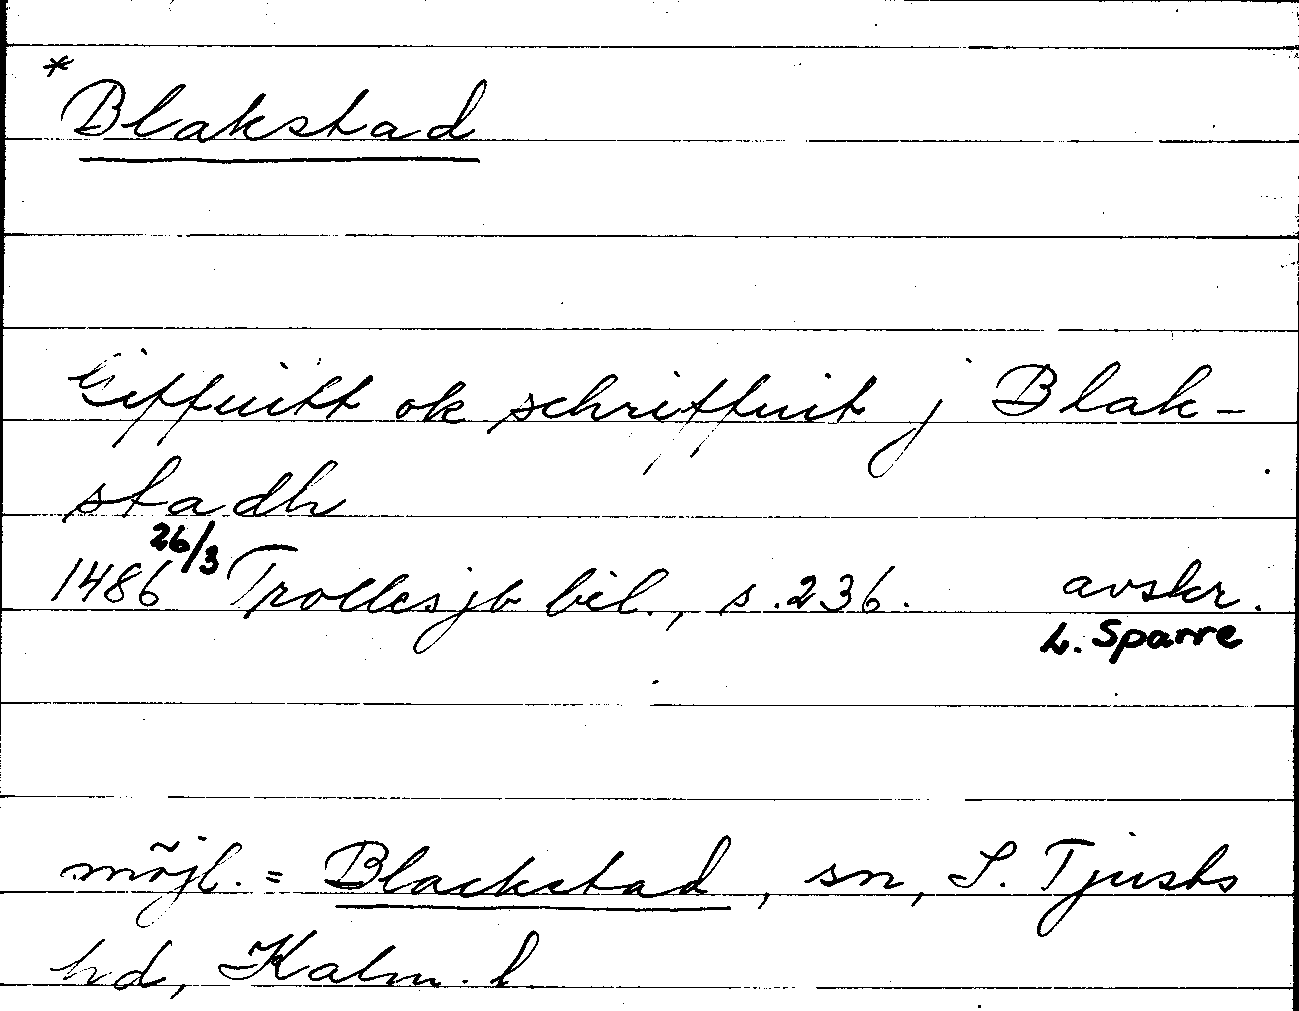 *Blakstad
Giffuitt ok schriffuit j Blak-
stadh
1486 26/3 Trolles jb bil., s. 236. avskr.
L. Sparre
möjl. = Blackstad, sn, S. Tjusts
hd, Kalm. l.